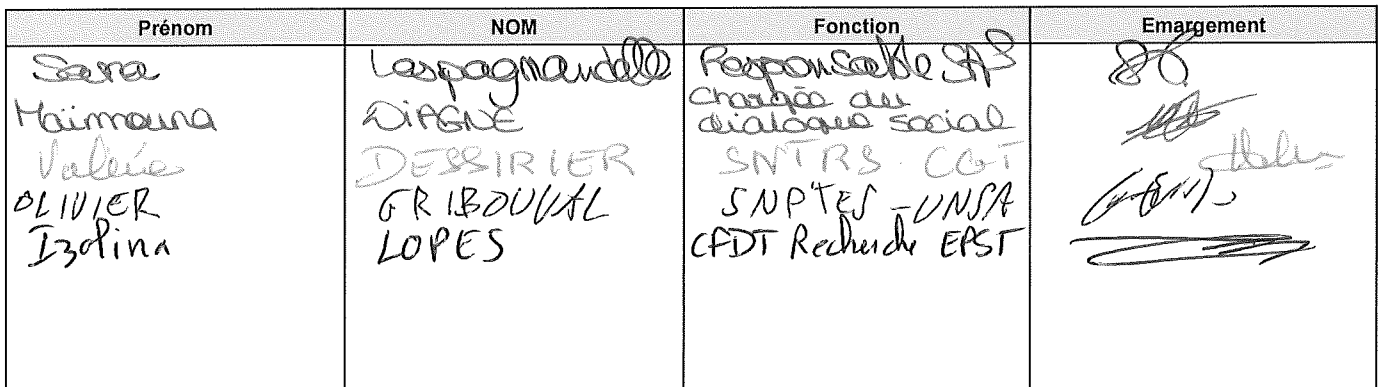 Prénom NOM Fonction Emargement
Sara Lespagnandelle Responsable SAS
Maïmouna DIAGNE Chargée du dialogue social
Valérie DESSIRIER SNTRS-CGT
OLIVIER GRIBOUVAL SNPTES-UNSA
Izolina LOPES CFDT Recherche EPST